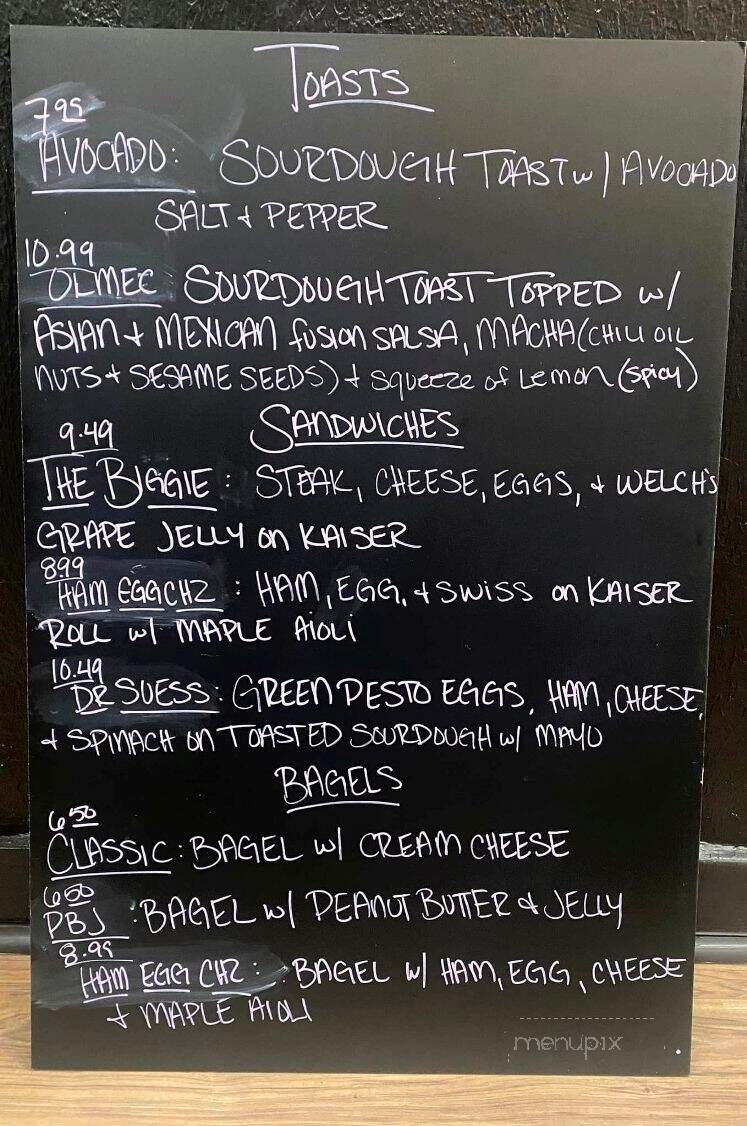 TOASTS
7.95
AVOCADO: SOURDOUGH TOAST w/ AVOCADO
SALT + PEPPER
10.99
OLMEC SOURDOUGH TOAST TOPPED w/
ASIAN + MEXICAN fusion SALSA, MACHA (CHILI OIL
NUTS + SESAME SEEDS) + squeeze of Lemon (spicy)
SANDWICHES
9.49
THE BIGGIE: STEAK, CHEESE, EGGS, + WELCH'S
GRAPE JELLY on KAISER
8.99
HAM EGG CHZ: HAM, EGG, + SWISS on KAISER
ROLL w/ MAPLE AIOLI
10.49
DR SUESS: GREEN PESTO EGGS, HAM, CHEESE,
+ SPINACH ON TOASTED SOURDOUGH w/ MAYO
BAGELS
6.50
CLASSIC: BAGEL w/ CREAM CHEESE
6.50
PBJ: BAGEL w/ PEANUT BUTTER & JELLY
8.99
HAM EGG CHZ: BAGEL w/ HAM, EGG, CHEESE
+ MAPLE AIOLI
menupix